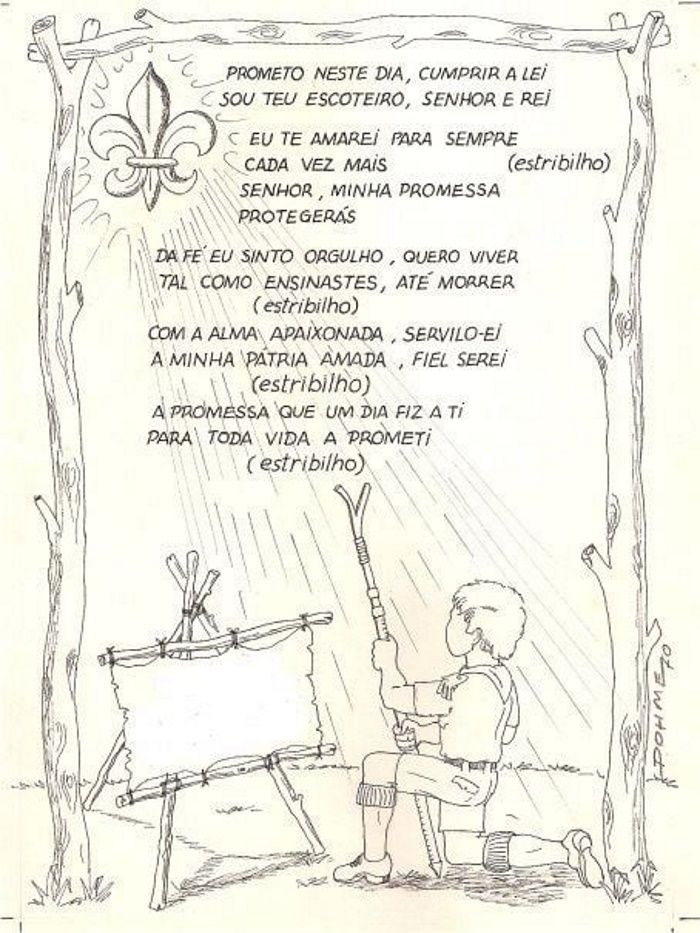 PROMETO NESTE DIA, CUMPRIR A LEI
SOU TEU ESCOTEIRO, SENHOR E REI
EU TE AMAREI PARA SEMPRE
CADA VEZ MAIS (estribilho)
SENHOR, MINHA PROMESSA
PROTEGERÁS
DA FÉ EU SINTO ORGULHO, QUERO VIVER
TAL COMO ENSINASTES, ATÉ MORRER
(estribilho)
COM A ALMA APAIXONADA, SERVILO-EI
A MINHA PÁTRIA AMADA, FIEL SEREI
(estribilho)
A PROMESSA QUE UM DIA FIZ A TI
PARA TODA VIDA A PROMETI
(estribilho)
DOHME 70